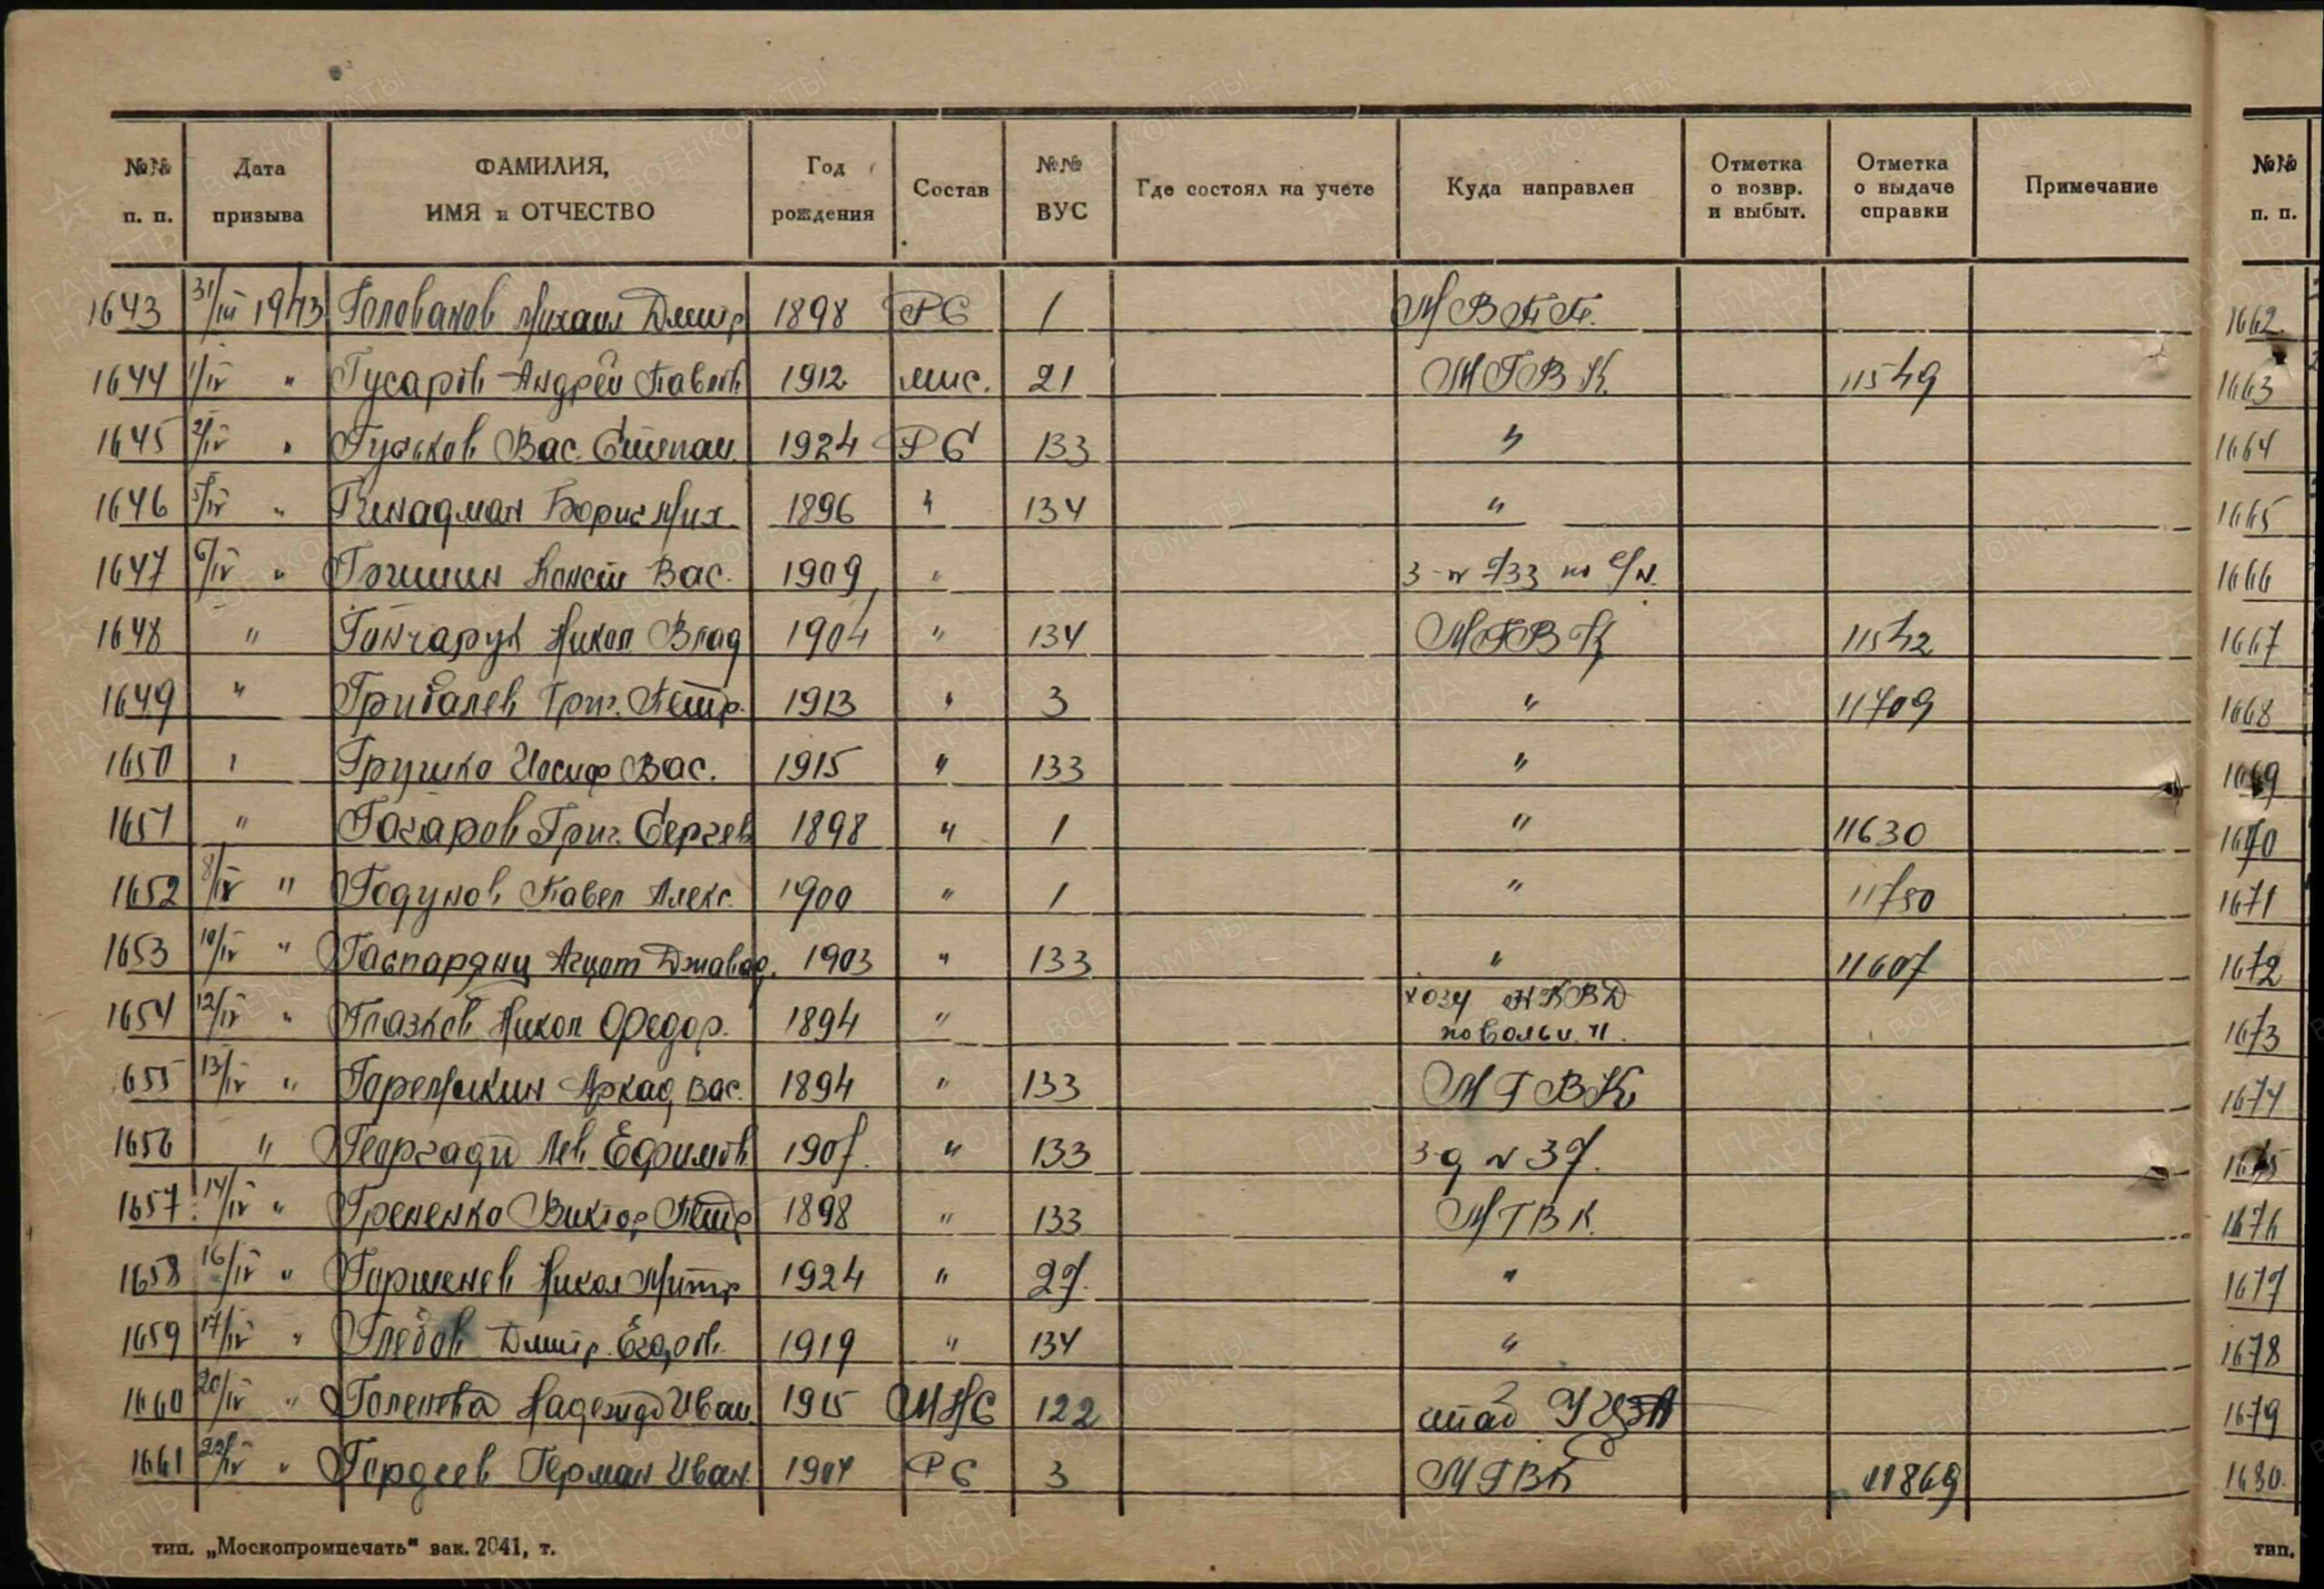 №№ п. п. | Дата призыва | ФАМИЛИЯ, ИМЯ и ОТЧЕСТВО | Год рождения | Состав | №№ ВУС | Где состоял на учете | Куда направлен | Отметка о возвр. и выбыт. | Отметка о выдаче справки | Примечание
1643 31/III 1943 Голованов Михаил Дмитр 1898 РС 1
1644 1/IV " Гусаров Андрей Павлов 1912 мнс. 21 МГВК 11549
1645 2/IV " Гуськов Вас. Степан. 1924 РС 133 "
1646 5/IV " Борис Мих 1896 " 134 "
1647 6/IV " Конст Вас. 1909 "
1648 " Гончарук Никол Влад 1904 " 134 МГВК 11542
1649 " Грибалев Григ. Петр. 1913 " 3 " 11709
1650 " Грушко Иосиф Вас. 1915 " 133 "
1651 " Григ. Сергеев 1898 " 1 " 11630
1652 8/IV " Годунов Павел Алекс. 1900 " 1 " 11750
1653 10/IV " Гаспарянц 1903 " 133 " 11607
1654 12/IV " Глазков Никол Федор. 1894 " ХОЗУ НКВД
по вольн.
1655 13/IV " Горемыкин Аркад Вас. 1894 " 133 МГВК
1656 " Георгади Лев Ефимов 1907. " 133 з-д № 37.
1657 14/IV " Грененко Виктор Петр 1898 " 133 МГВК.
1658 16/IV " Горшенев Никол Митр 1924 " 27. "
1659 17/IV " Глебов Дмитр. Егоров. 1919 " 134 "
1660 20/IV " Надежда Иван. 1915 МНС 122 штаб
1661 22/IV " Гордеев Герман Иван. 1904 РС 3 МГВК 11869
тип. „Москопромпечать" зак. 2041, т.
№№
п. п.
1662.
1663
1664
1665
1666
1667
1668
1669
1670
1671
1672
1673
1674
1675
1676
1677
1678
1679
1680.
тип.